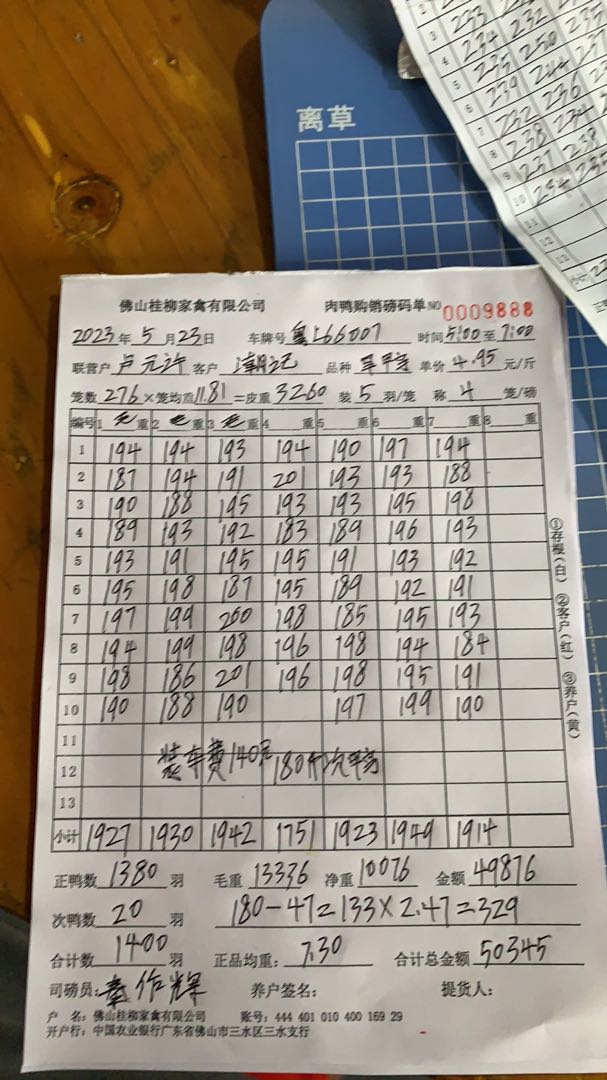 离草
233 232 235
234 250
235 244
239 236
232 234
238 238
237
234
佛山桂柳家禽有限公司 肉鸭购销磅码单 NO 0009888
2023 年 5 月 23 日 车牌号 粤L66007 时间 5:00 至 7:00
联营户 卢元许 客户 潮记 品种 单价 4.95 元/斤
笼数 276 × 笼均重 11.81 = 皮重 3260 装 5 羽/笼 称 4 笼/磅
编号 1 毛 重 2 毛 重 3 毛 重 4 重 5 重 6 重 7 重 8 重
1 194 194 193 194 190 197 194
2 187 194 191 201 193 193 188
3 190 188 195 193 193 195 198
4 189 193 192 183 189 196 193
5 193 191 195 195 191 193 192
6 195 198 187 195 189 192 191
7 197 199 200 198 185 195 193
8 194 199 198 196 198 194 184
9 198 186 201 196 198 195 191
10 190 188 190 197 199 190
11
12 装车费140元 180
13
小计 1927 1930 1942 1751 1923 1949 1914
正鸭数 1380 羽 毛重 13336 净重 10076 金额 49876
次鸭数 20 羽 180-47=133×2.47=329
合计数 1400 羽 正品均重: 7.30 合计总金额 50345
司磅员: 秦作辉 养户签名: 提货人:
户 名: 佛山桂柳家禽有限公司 账号: 444 401 010 400 169 29
开户行: 中国农业银行广东省佛山市三水区三水支行
①存根(白) ②客户(红) ③养户(黄)